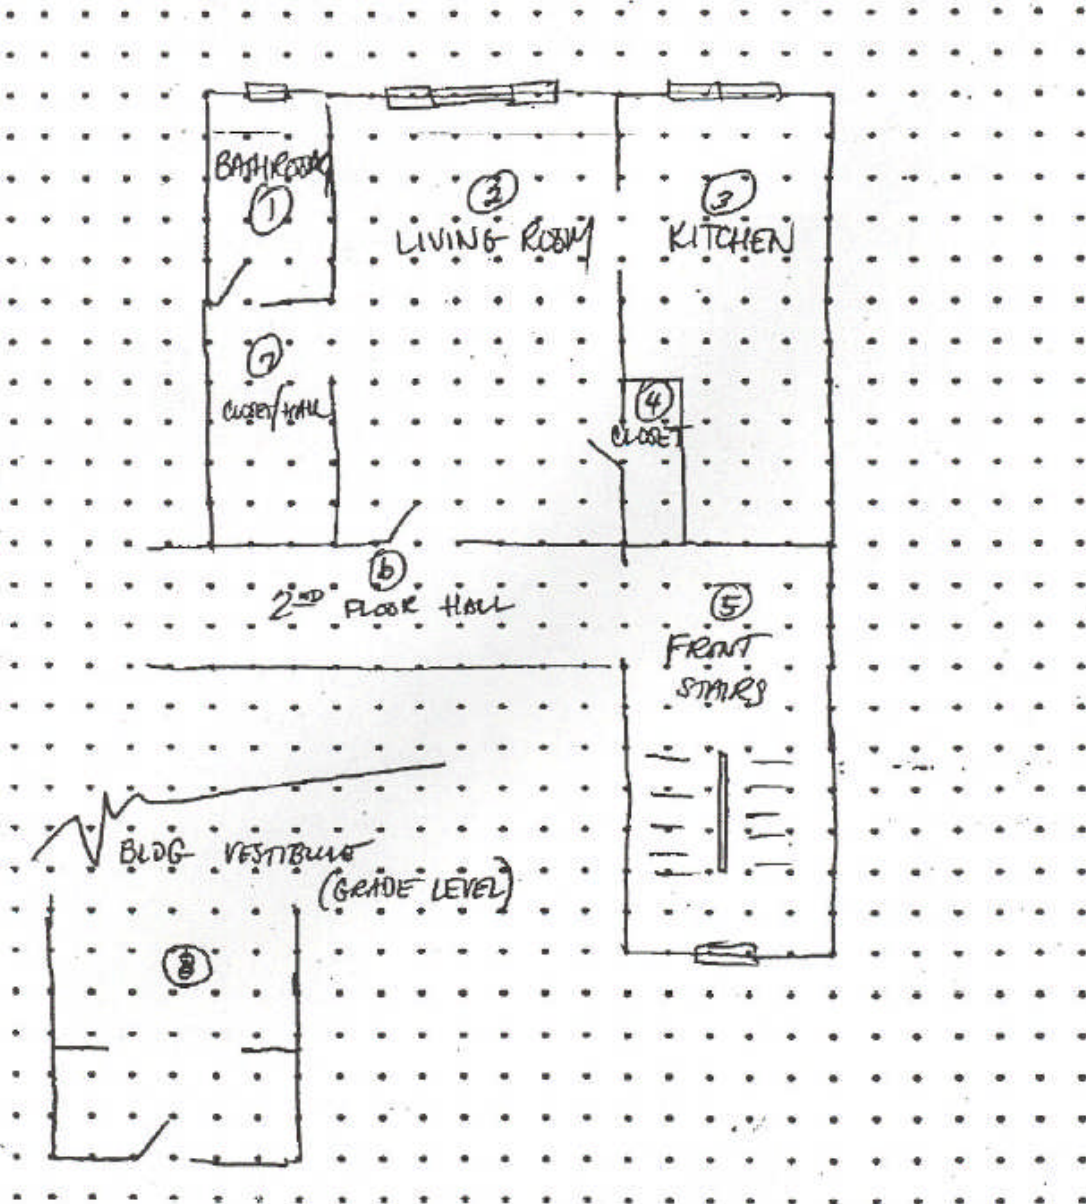 BATHROOM
1
2
LIVING ROOM
3
KITCHEN
7
CLOSET/HALL
4
CLOSET
6
2ND FLOOR HALL
5
FRONT
STAIRS
BLDG VESTIBULE
(GRADE LEVEL)
8